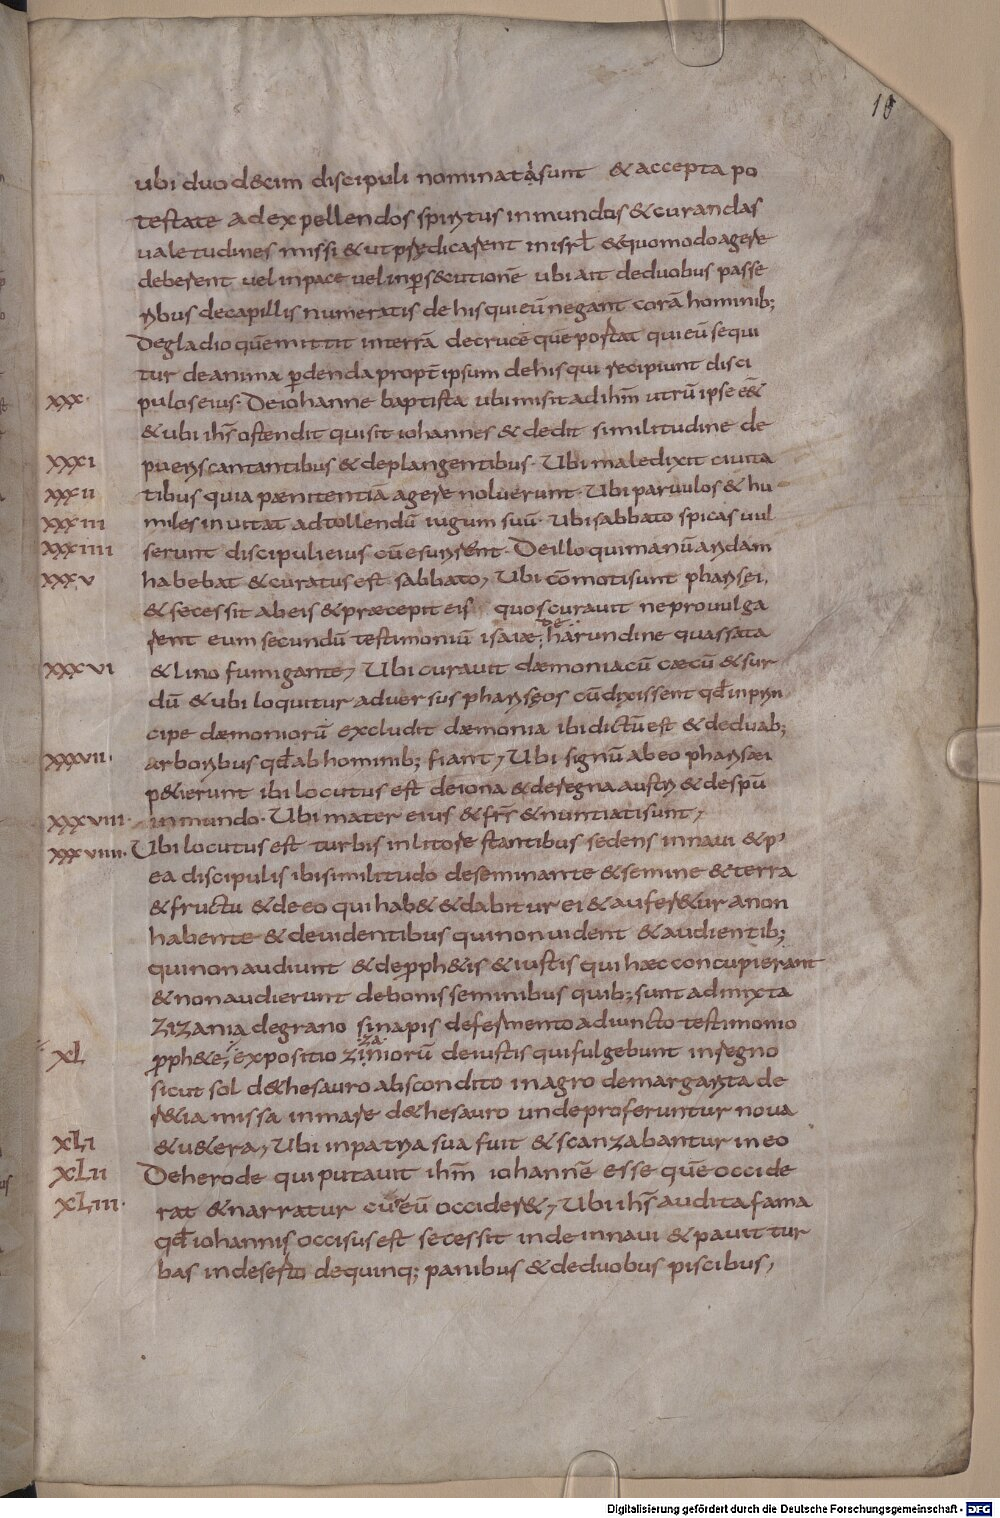 10
ubi duodecim discipuli nominati sunt & accepta po
testate ad expellendos spiritus inmundos & curandas
valetudines missi & ut prędicarent in isrł & quomodo agere
deberent vel in pace vel in persecutionē ubi ait de duobus passe
ribus de capillis numeratis de his qui eū negant corā hominib;
De gladio quē mittit in terrā de crucē quē portat qui eū sequi
tur de anima perdenda propt̄ ipsum de his qui recipiunt disci
xxx· pulos eius· De iohanne baptista ubi misit ad ihm̄ utrū ipse eēt
& ubi ihs̄ ostendit qui sit iohannes & dedit similitudine de
xxxi pueris cantantibus & deplangentibus· Ubi maledixit civita
xxxii tibus quia pænitentiā agere noluerunt· Ubi parvulos & hu
xxxiii miles invitat ad tollendū iugum suū· Ubi sabbato spicas vul
xxxiiii serunt discipuli eius cū esurirent· De illo qui manū aridam
xxxv habebat & curatus est sabbato, Ubi cōmoti sunt pharisei,
& secessit ab eis & præcepit eis quos curavit ne provulga
rent eum secundū testimoniū isaiæ; de harundine quassata
xxxvi & lino fumigante, Ubi curavit dæmoniacū cæcū & sur
dū & ubi loquitur adversus phariseos cū dixissent qđ in prin
cipe dæmoniorū excludit dæmonia ibi dictū est & de duab;
xxxvii· arboribus qđ ab hominib; fiant, Ubi signū ab eo pharisæi
p&ierunt ibi locutus est de iona & de regna austri & de spū
xxxviii· inmundo· Ubi mater eius & frs̄ & nuntiati sunt,
xxxviiii· Ubi locutus est turbis in litore stantibus sedens in navi & p'
ea discipulis ibi similitudo de seminante & semine & terra
& fructu & de eo qui hab& & dabitur ei & aufer&ur a non
habente & de videntibus qui non vident & audientib;
qui non audiunt & de proph&is & iustis qui hæc concupierant
& non audierunt de bonis seminibus quib; sunt admixta
zizania de grano sinapis de fermento adiuncto testimonio
xL proph&e; expositio zizaniorū de iustis qui fulgebunt in regno
sicut sol de thesauro abscondito in agro de margarita de
r&ia missa in mare de thesauro unde proferuntur nova
xLi & v&era, Ubi in patria sua fuit & scanzabantur in eo
xLii De herode qui putavit ihm̄ iohannē esse quē occide
xLiii· rat & narratur cū eū occider&, Ubi ihs̄ audita fama
qđ iohannis occisus est secessit inde in navi & pavit tur
bas in deserto de quinq; panibus & de duobus piscibus,
Digitalisierung gefördert durch die Deutsche Forschungsgemeinschaft - DFG